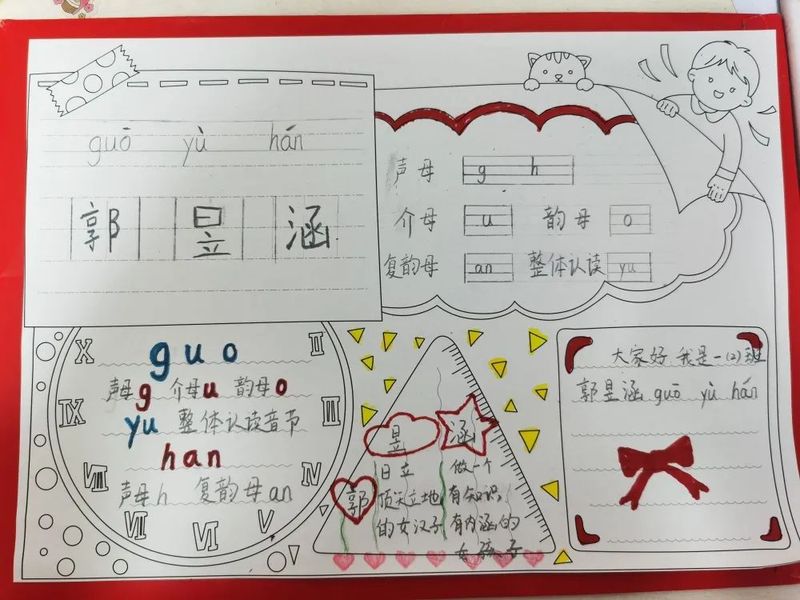 guō yù hán
郭 昱 涵
声母 g h
介母 u 韵母 o
复韵母 an 整体认读 yu
guo
声母g 介母u 韵母o
yu 整体认读音节
han
声母h 复韵母an
X
IX
VIII
VII
VI
V
IV
III
II
昱 涵
郭
日立
顶天立地
的女汉子
做一个
有知识
有内涵的
女孩子
大家好 我是一(2)班
郭昱涵 guō yù hán